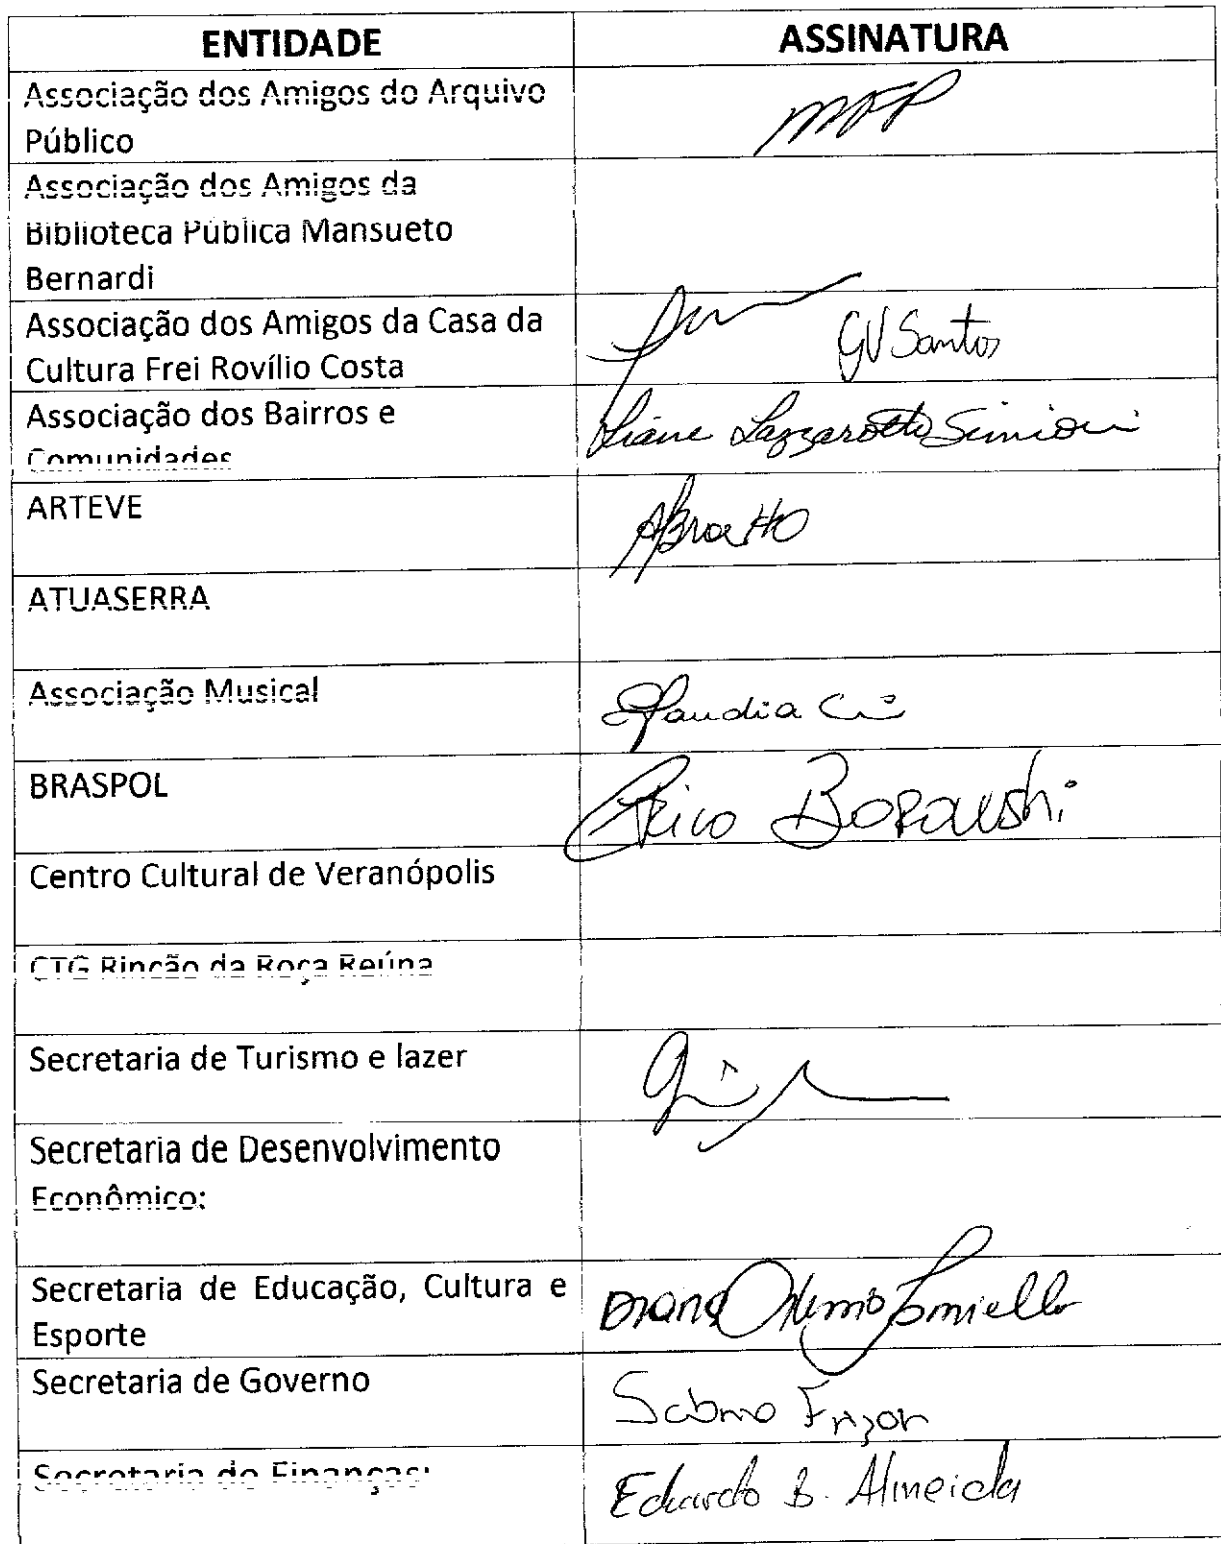 ENTIDADE ASSINATURA
Associação dos Amigos do Arquivo
Público
MFP
Associação dos Amigos da
Biblioteca Pública Mansueto
Bernardi
Associação dos Amigos da Casa da
Cultura Frei Rovílio Costa
GV Santos
Associação dos Bairros e
Comunidades
Liane Lazzarotto Simioni
ARTEVE
ATUASERRA
Associação Musical
Claudia
BRASPOL
Borowski
Centro Cultural de Veranópolis
CTG Rincão da Roça Reúna
Secretaria de Turismo e lazer
Secretaria de Desenvolvimento
Econômico:
Secretaria de Educação, Cultura e
Esporte
Secretaria de Governo
Frizon
Secretaria de Finanças:
Eduardo B. Almeida